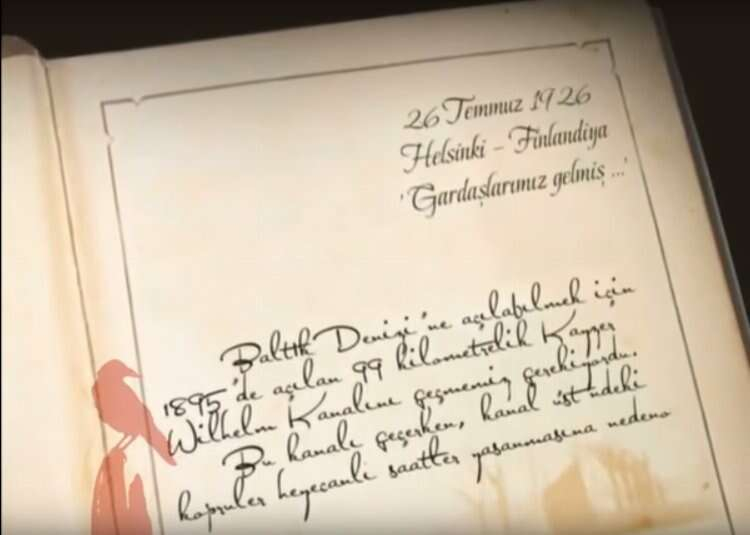 26 Temmuz 1926
Helsinki – Finlandiya
'Gardaşlarımız gelmiş ...'
Baltık Denizi'ne açılabilmek için
1895'de açılan 99 kilometrelik Kayzer
Wilhelm Kanalını geçmemiz gerekiyordu.
Bu kanalı geçerken, kanal üst ündeki
kopruler heyecanlı saatler yaşanmasına nedeno